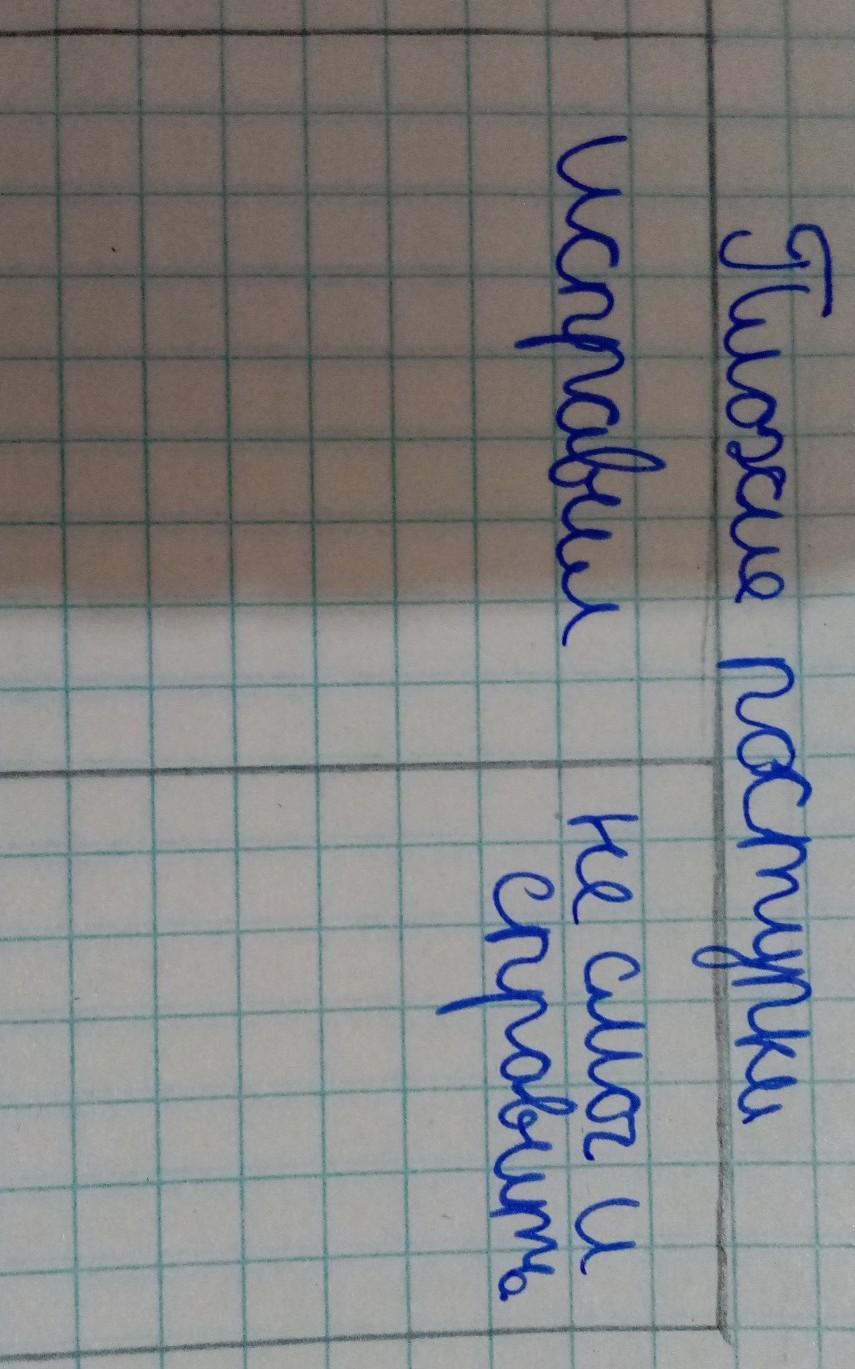 Плохие поступки
исправил
не смог и
справить